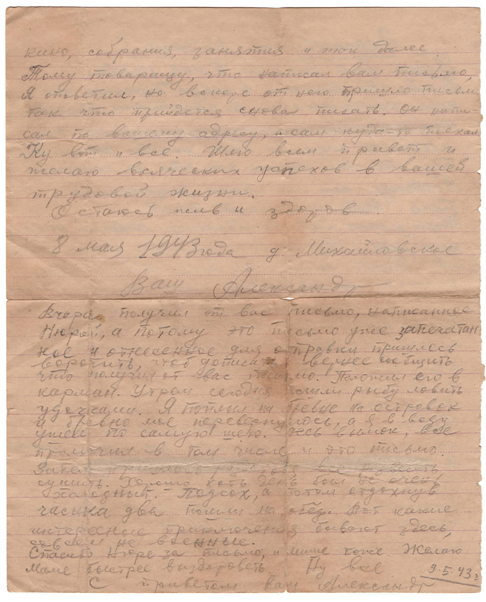 кино, собрания, занятия и так далее.
Тому товарищу, что написал вам письмо,
Я ответил, но вскоре от него пришло письмо
так что придётся снова писать. Он напи-
сал по вашему адресу, а сам куда-то поехал
Ну вот и все. Шлю всем привет и
желаю всяческих успехов в вашей
трудовой жизни.
Остаюсь жив и здоров
8 мая 1943 года д. Михайловское
Ваш Александр
Вчера получил от вас письмо, написанное
Нюрой, а потому это письмо уже запечатан
ное и отнесенное для отправки пришлось
воротить, чтоб
что получил от вас письмо. Положил его в
карман. Утром сегодня пошли рыбу ловить
удочками. Я поплыл на бревне на островок
и бревно мое перевернулось, а я в воду
ушел по самую шею. Весь вымок. Все
промочил в том числе и это письмо.
Затем пришлось все
сушить. Хорошо хоть день был не очень
холодный. Подсох, а потом отдохнув
часика два пошли на обед. Вот какие
интересные приключения бывают здесь,
совсем не военные.
Спасибо Нюре за письмо, и мише тоже Желаю
Маме быстрее выздороветь Ну все
С приветом Ваш Александр 9.5.43 г